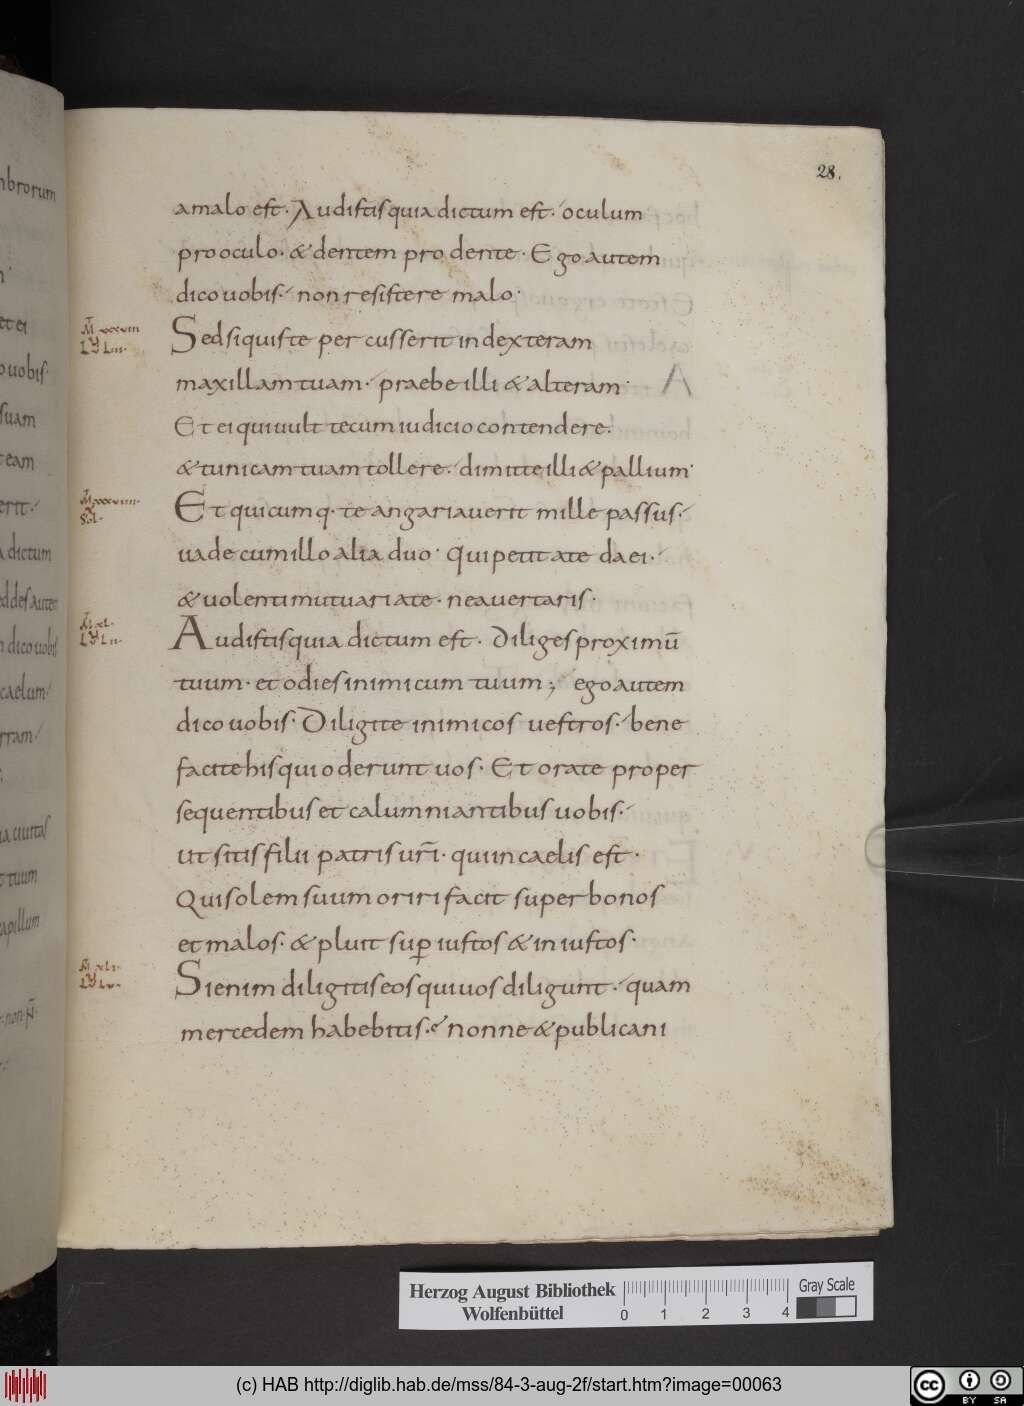 28.
amalo est. Audistis quia dictum est. oculum
pro oculo. & dentem pro dente. Ego autem
dico uobis. non resistere malo.
M xxxviii
LU Liii.
Sed si quis te percusserit in dexteram
maxillam tuam. praebe illi & alteram.
Et ei qui uult tecum iudicio contendere.
& tunicam tuam tollere. dimitte illi & pallium.
Et quicumq. te angariauerit mille passus.
uade cum illo alia duo. qui petit a te da ei.
& uolenti mutuari a te. ne auertaris.
M xl.
LU Lii.
Audistis quia dictum est. diliges proximū
tuum. et odies inimicum tuum; ego autem
dico uobis. Diligite inimicos uestros. bene
facite his qui oderunt uos. Et orate pro per
sequentibus et calumniantibus uobis.
ut sitis filii patris uri̅. qui in caelis est.
Qui solem suum oriri facit super bonos
et malos. & pluit sup̱ iustos & iniustos.
M xli.
LU Lv.
Si enim diligitis eos qui uos diligunt. quam
mercedem habebitis. nonne & publicani
mbrorum
et ei
o uobis.
suam
team
erit.
a dictum
n dico uobis
caelum.
rram.
ia ciuitas
t tuum
apillum
. non
Herzog August Bibliothek
Wolfenbüttel
0 1 2 3 4
Gray Scale
(c) HAB http://diglib.hab.de/mss/84-3-aug-2f/start.htm?image=00063
cc BY SA